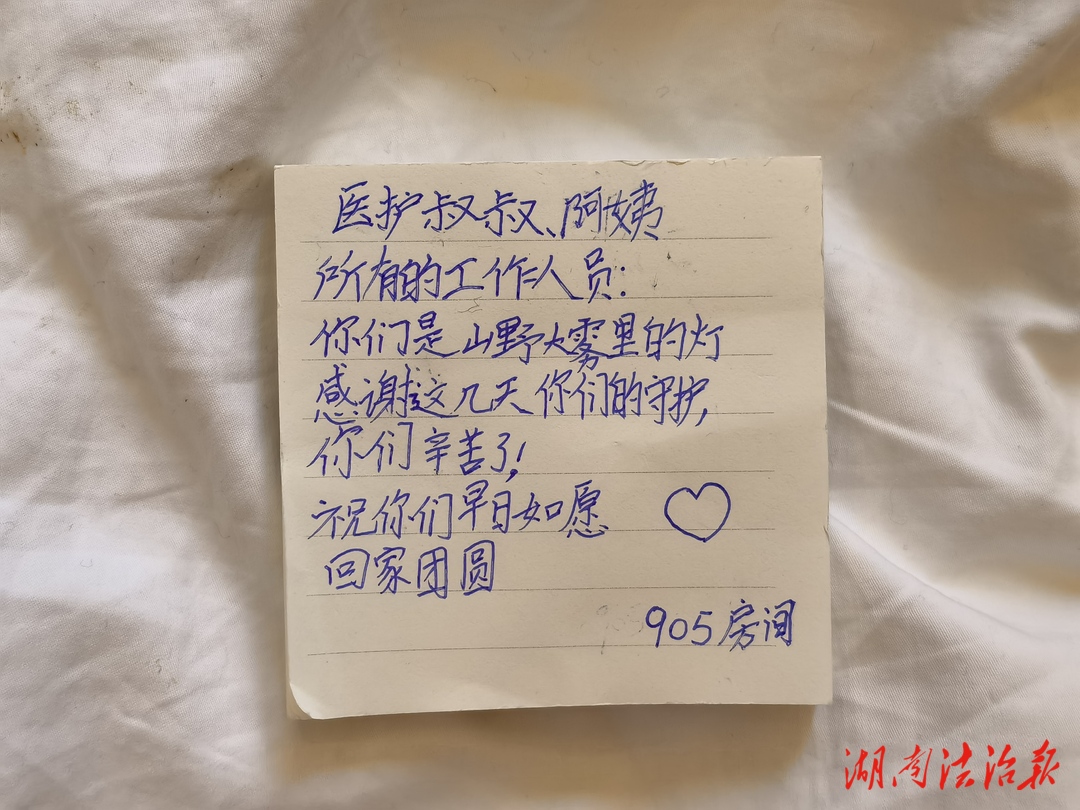 医护叔叔、阿姨
所有的工作人员:
你们是山野大雾里的灯
感谢这几天你们的守护,
你们辛苦了!
祝你们早日如愿
回家团圆
905房间
湖南法治报